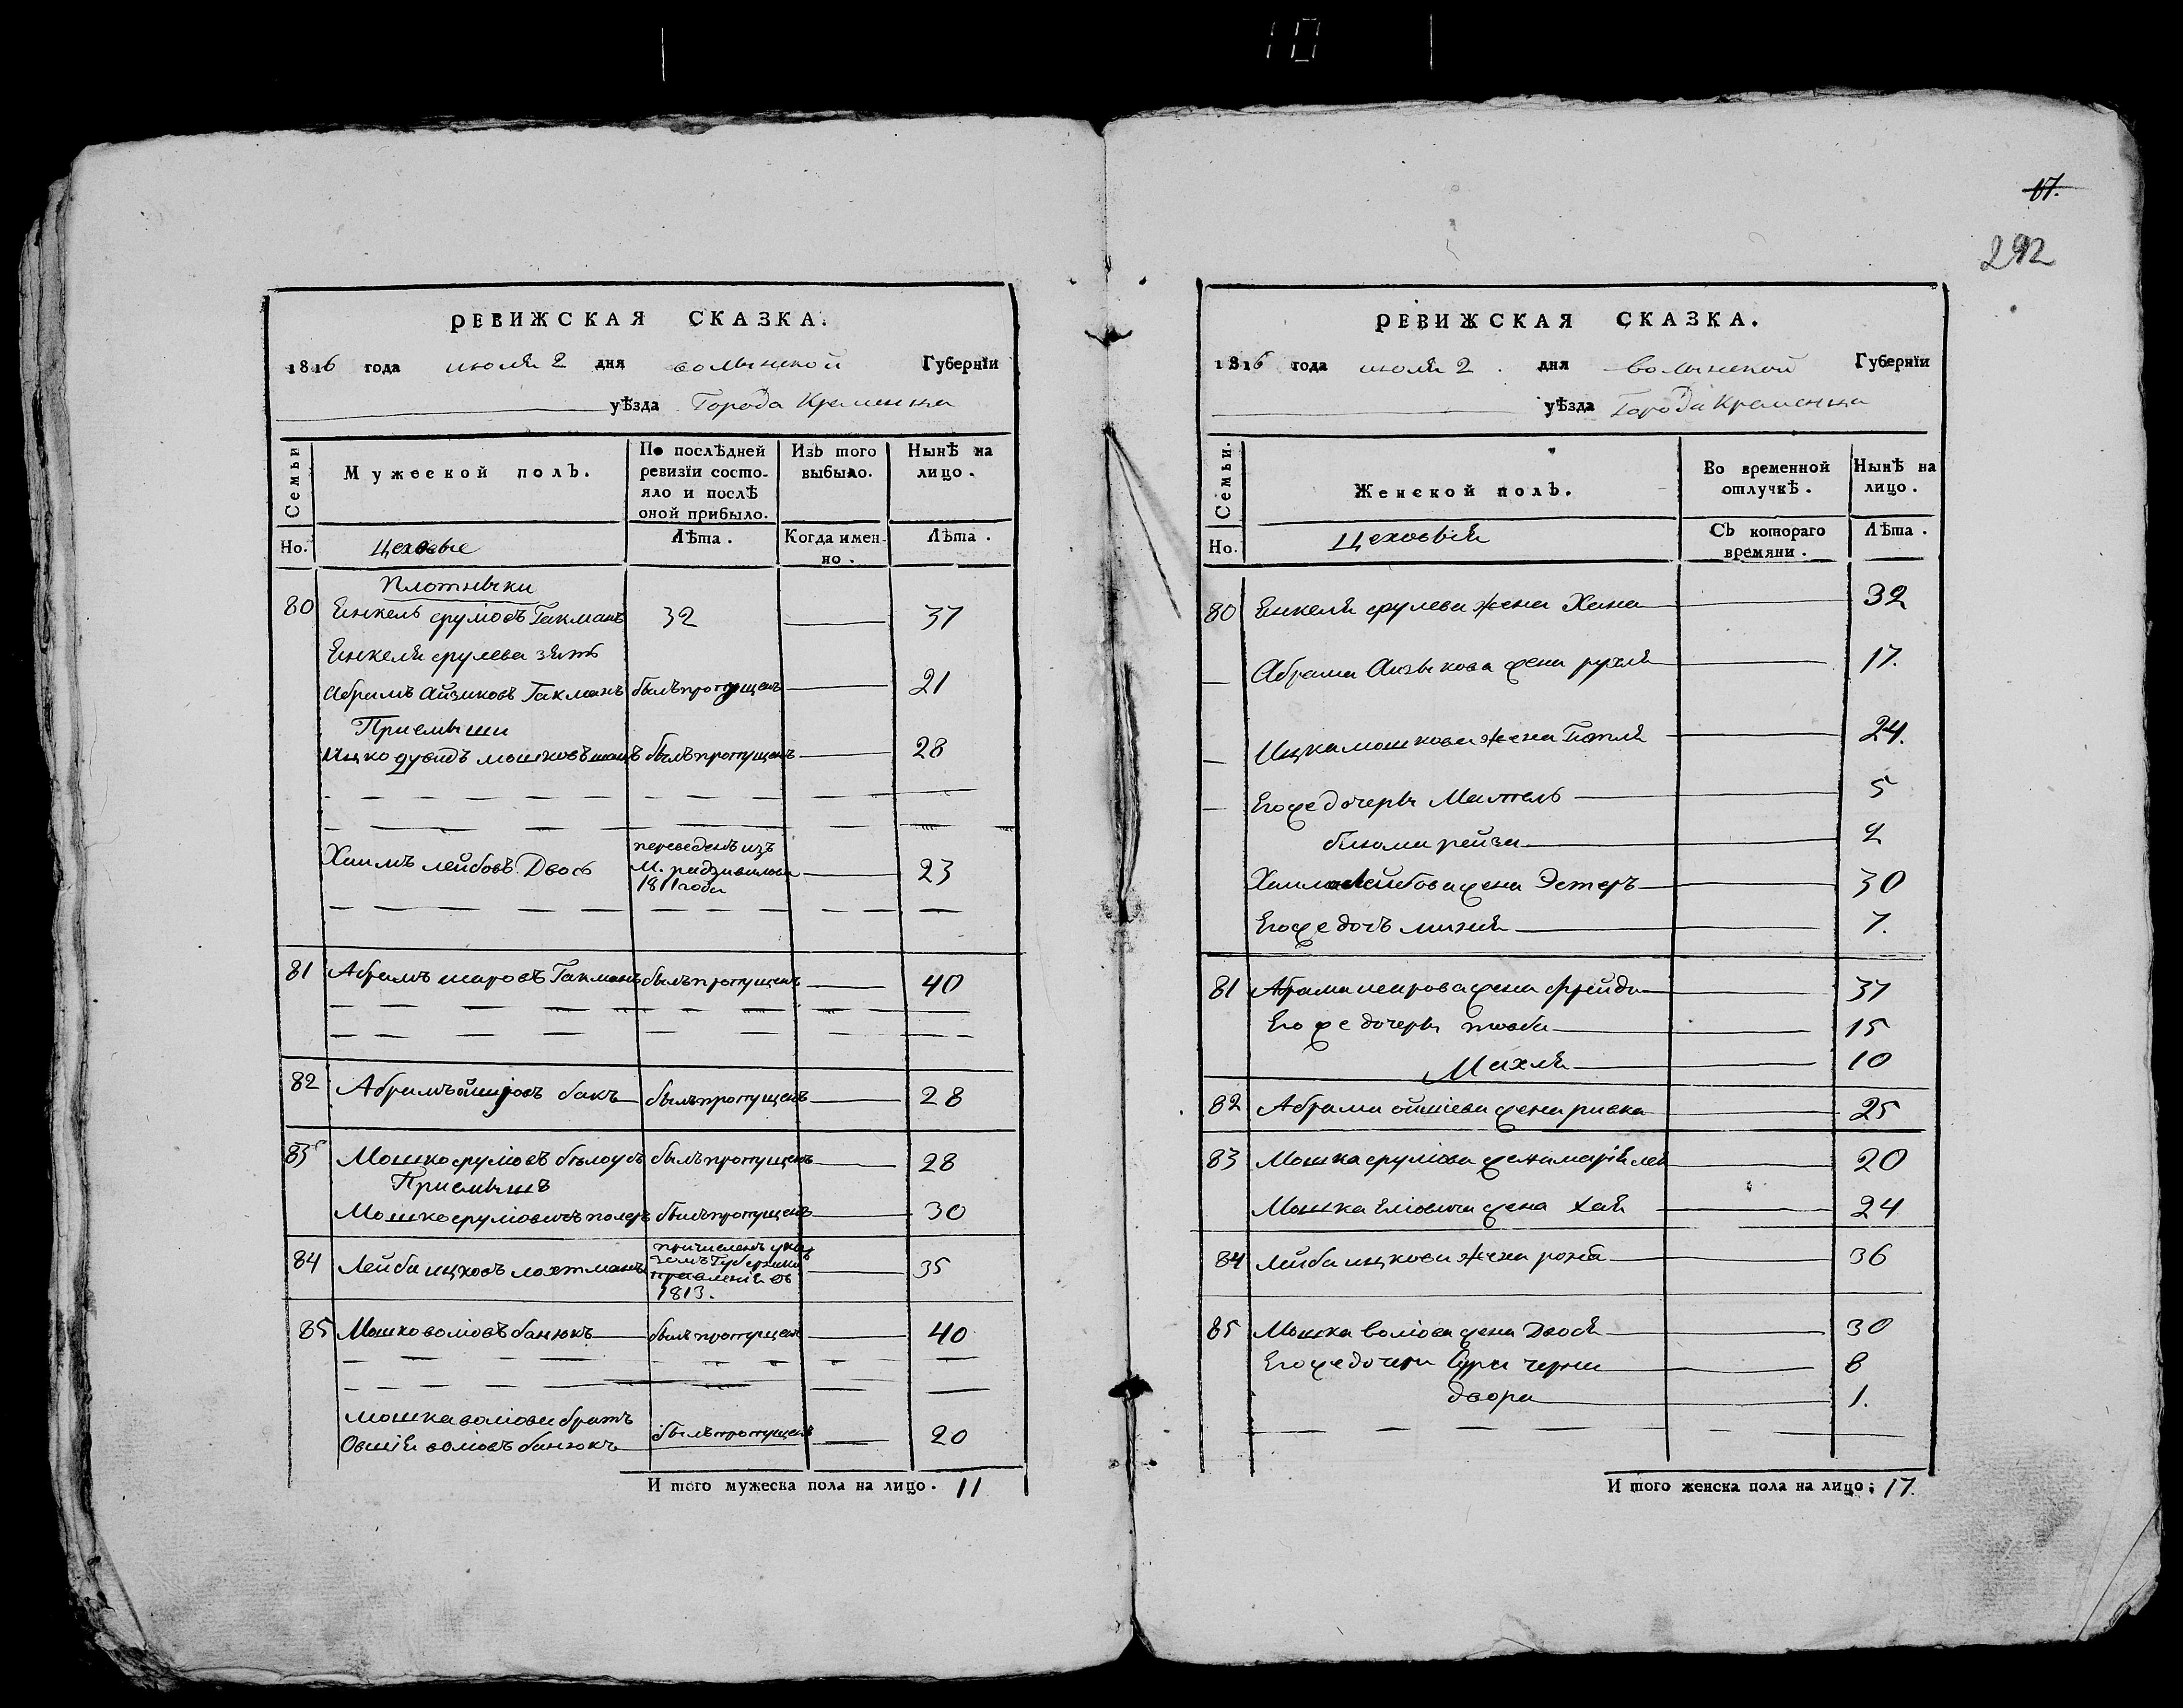 10
РЕВИЖСКАЯ СКАЗКА.
1816 года июля 2 дня волынской Губернїи
уѣзда Города Кременца
Семьи
Мужеской полъ.
По послѣдней ревизїи состо-
яло и послѣ
оной прибыло.
Изъ того
выбыло.
Нынѣ на
лицо.
Но.
Цеховые
Лѣта.
Когда имен-
но.
Лѣта.
Плотныки
80 Еинкель срулiовъ Гакманъ 32 37
Еинкеля срулева зять
Абрамъ Айзиковъ Гакманъ былъ пропущенъ 21
Приемыши
Ицко дувидъ мошковъ былъ пропущенъ 28
Хаимъ лейбовъ Двось
переведенъ изъ
М. радзивилова
1811 года
23
81 Абрамъ шаровъ Гакманъ былъ пропущенъ 40
82 Абрамъ бакъ былъ пропущенъ 28
83 Мошко срулiовъ бѣлоусъ былъ пропущенъ 28
Приемышъ
Мошко срулiовичъ былъ пропущенъ 30
84 Лейба ицковъ лохтманъ
причисленъ ука
зомъ Губернски
правленiя въ
1813.
35
85 Мошко волiовъ банюкъ былъ пропущенъ 40
мошка волiова братъ
Овшiя волiовъ банюкъ былъ пропущенъ 20
И того мужеска пола на лицо. 11
17.
292
РЕВИЖСКАЯ СКАЗКА.
1816 года июля 2. дня волынской Губернїи
уѣзда Города Кременца
Семьи.
Женской полъ.
Во временной
отлучкѣ.
Нынѣ на
лицо.
Но.
Цеховыя
Съ котораго
времяни.
Лѣта.
80 Еинкеля срулева жена Хана 32
Абрама Аизыкова жена рухля 17.
Ицка мошкова жена Гитля 24.
Его же дочеры Мантель 5
блюма рейза 2
Хаима Лейбова жена Эстеръ 30
Его же дочъ минця 7.
81 Абрама шарова жена фрейда 37
Его же дочеры товба 15
Махля 10
82 Абрама жена ривка 25
83 Мошка срулiова жена марiя лея 20
Мошка Елiовича жена хая 24
84 Лейба ицкова жена ройза 36
85 Мошка волiова жена Двося 30
Его же дочери Сура черна 8
двора 1.
И того женска пола на лицо: 17.